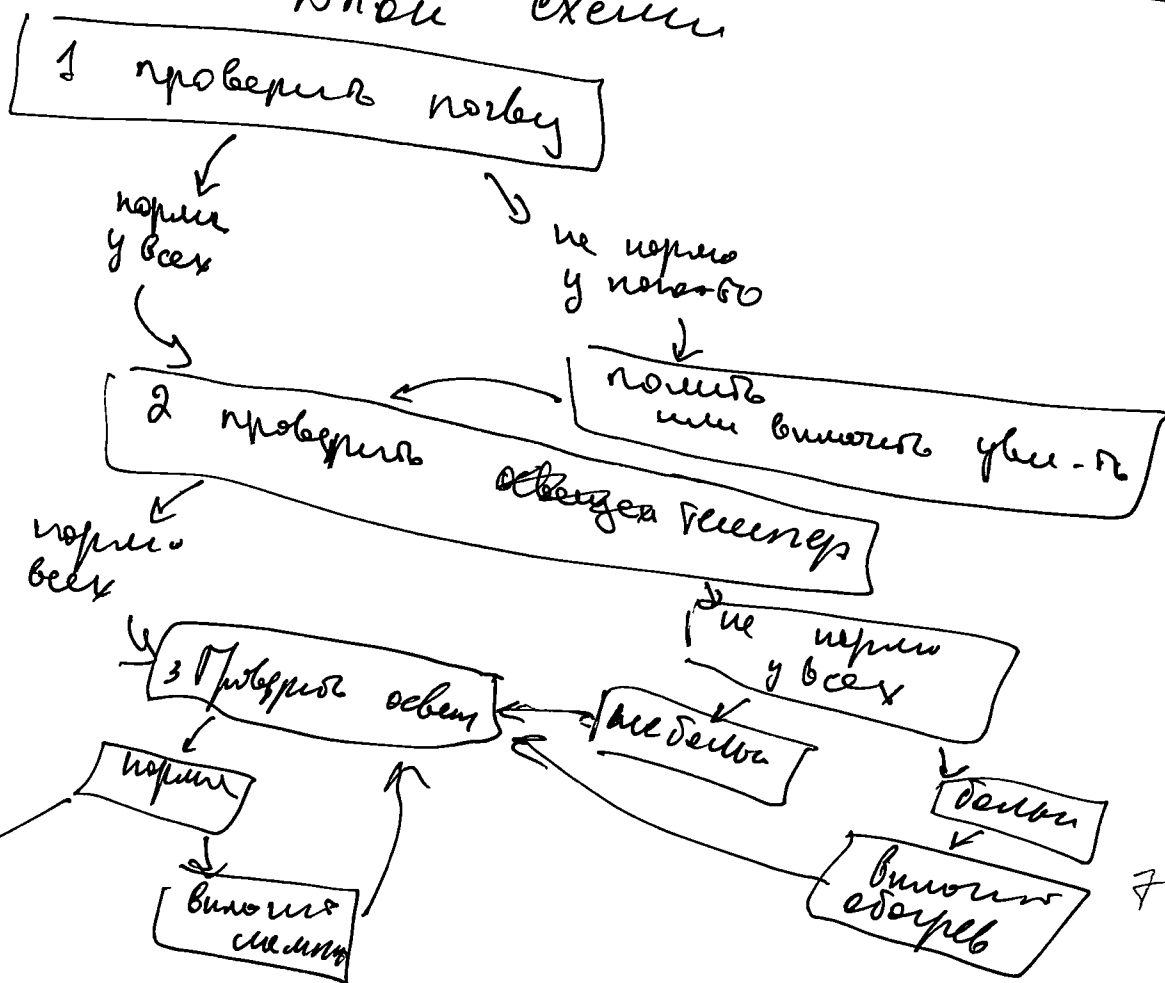 схемы
1 проверить почву
норма
у всех
не норма
у кого-то
полить
или включить увл-ть
2 проверить темпер
норма
всех
не норма
у всех
3 Проверить освещ
норма
включить
лампы
включить
обогрев